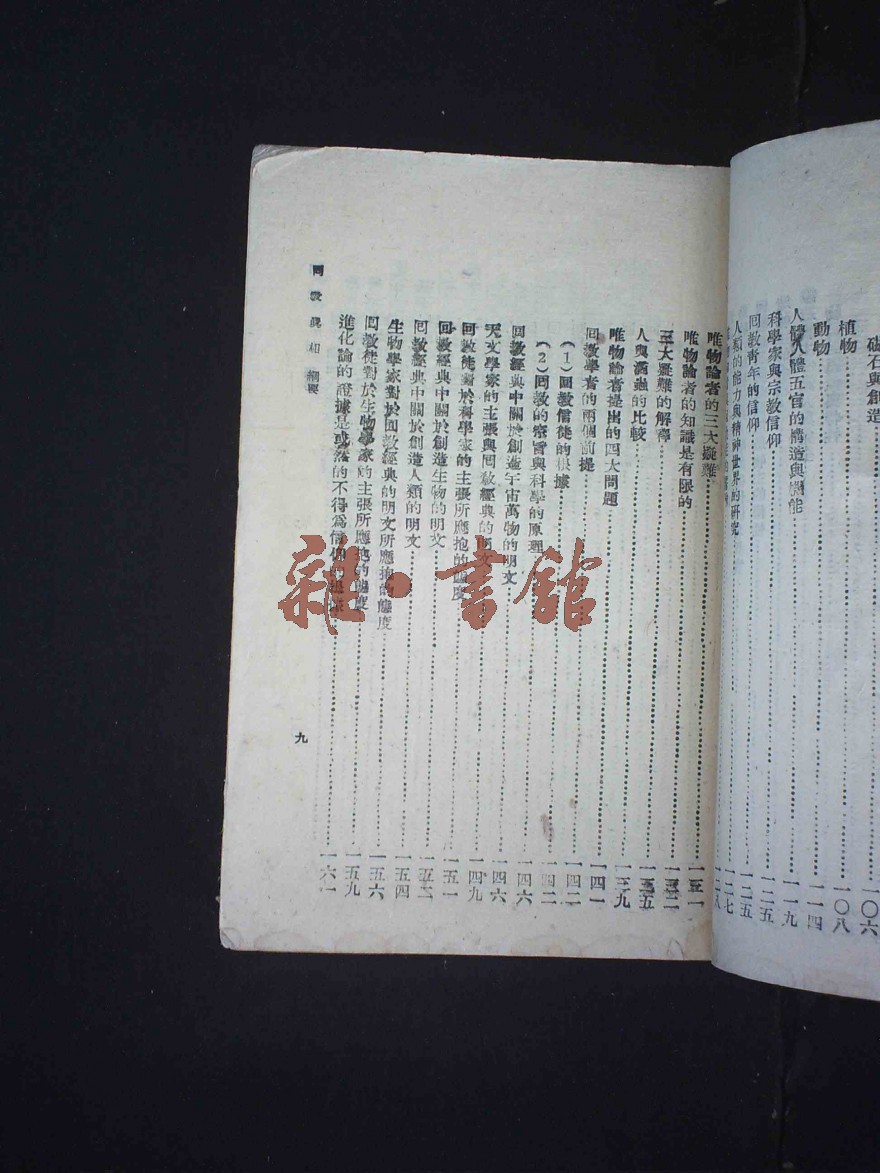 磁石與創造……一〇六
植物……一〇八
動物……一一四
人體五官的構造與機能……一一九
科學家與宗教信仰……一二五
回教靑年的信仰……一二五
人類的能力與精神世界的研究……一二七
一二八
唯物論者的三大疑難……一三一
唯物論者的知識是有限的……一三二
三大疑難的解釋
人與滴蟲的比較……一三五
唯物論者提出的四大問題……一三九
回敎學者的兩個前提……一四一
(1)回敎信徒的根據……一四二
(2)回敎的宗旨與科學的原理……一四二
回敎經典中關於創造宇宙萬物的明文……一四六
天文學家的主張與回敎經典的明文……一四六
回敎徒對於科學家的主張所應抱的態度……一四九
回敎經典中關於創造生物的明文……一五一
回敎經典中關於創造人類的明文……一五二
生物學家對於回敎經典的明文所應抱的態度……一五四
回敎徒對於生物學家的主張所應抱的態度……一五六
進化論的證據是或然的不得爲信仰的……一六一
回敎眞相 綱要
九
雜·書館